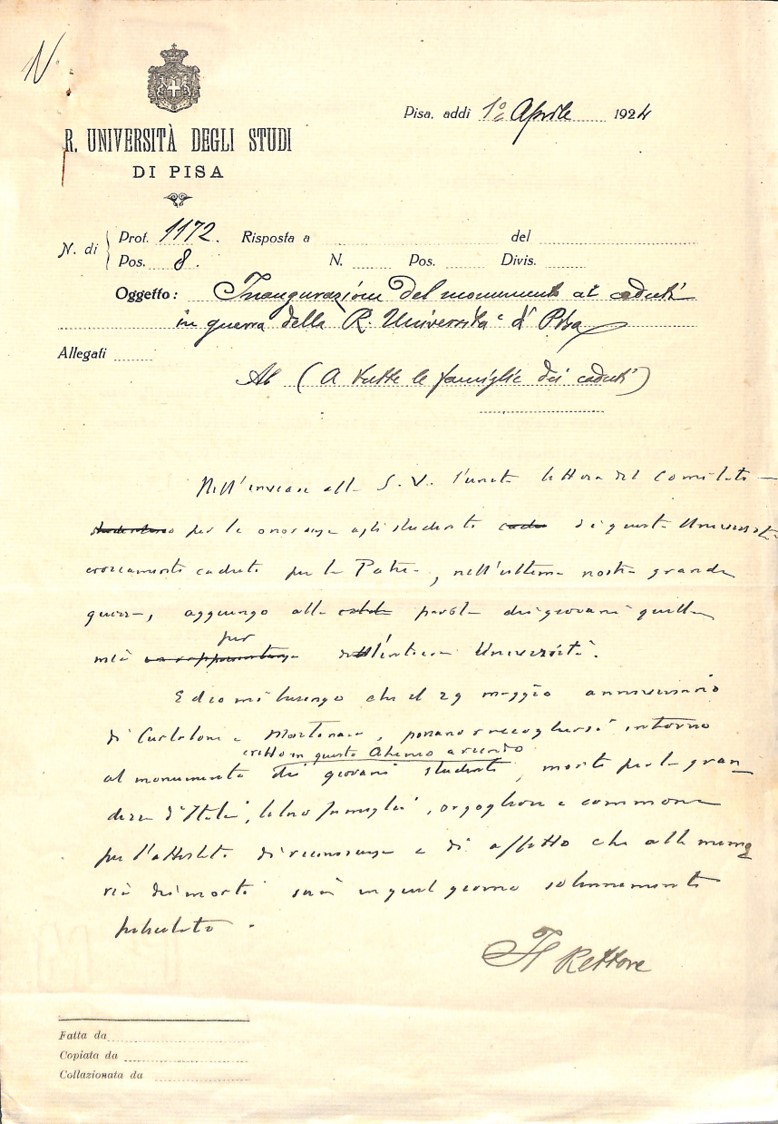 N
Pisa, addì 1º Aprile 1924
R. UNIVERSITÀ DEGLI STUDI
DI PISA
N. di Prot. 1172. Risposta a del
Pos. 8. N. Pos. Divis.
Oggetto: Inaugurazione del monumento ai caduti
in guerra della R. Università di Pisa
Allegati
Al (A tutte le famiglie dei caduti)
Nell'inviare alla S. V. l'unita lettera del Comitato
per le onoranze agli studenti di questa Università
eroicamente caduti per la Patria, nell'ultima nostra grande
guerra, aggiungo alla parola dei giovani quella
mia per l'intera Università.
Ed io mi lusingo che il 29 maggio anniversario
di Curtatone e Montanara, possano raccogliersi intorno
eretto in questo Ateneo a ricordo
al monumento dei giovani studenti, morti per la gran
dezza d'Italia, le loro famiglie, orgogliose e commosse
per l'attestato di riconoscenza e di affetto che alla memo
ria dei morti sarà in quel giorno solennemente
tributato.
Il Rettore
Fatta da
Copiata da
Collazionata da